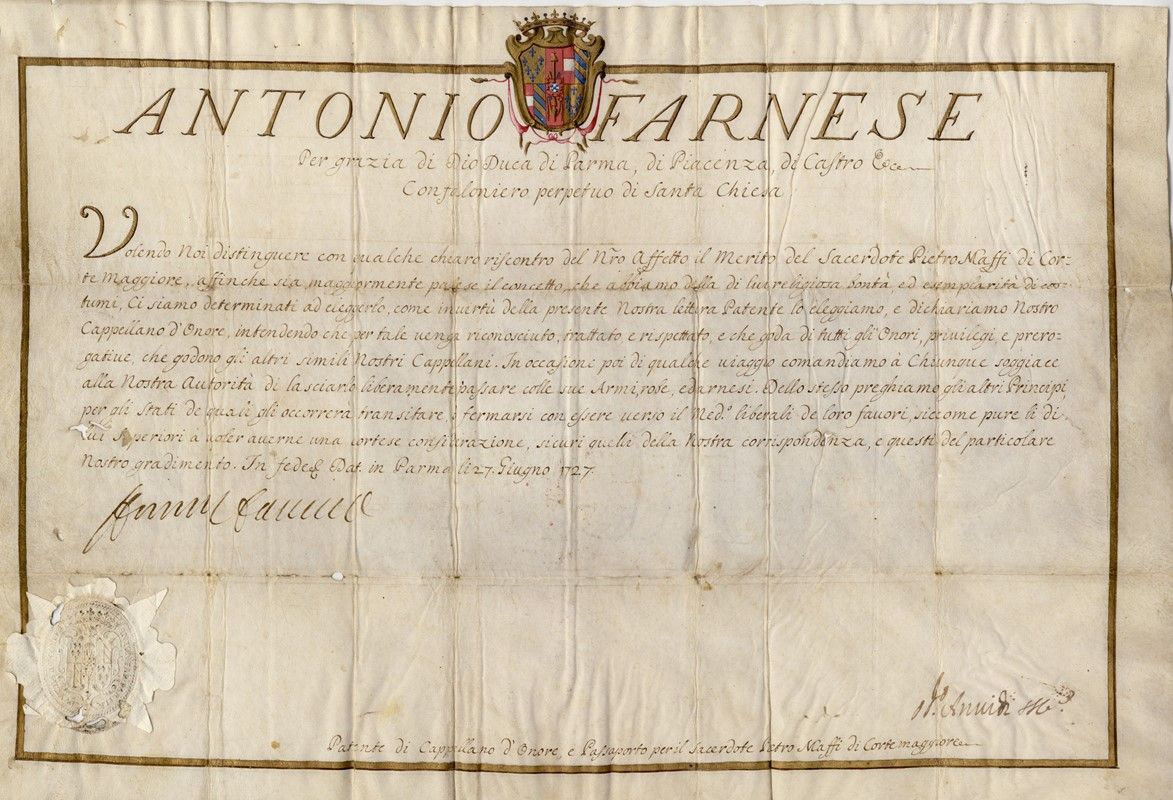 ANTONIO FARNESE
Per grazia di Dio Duca di Parma, di Piacenza, di Castro &c.
Confaloniero perpetuo di Santa Chiesa
Volendo Noi distinguere con qualche chiaro riscontro del Nro Affetto il Merito del Sacerdote Pietro Maffi di Cor-
te Maggiore, affinche sia maggiormente palese il concetto, che abbiamo della di lui religiosa bontà, ed esemplarità di cos-
tumi, Ci siamo determinati ad eleggerlo, come in virtù della presente Nostra lettera Patente lo eleggiamo, e dichiariamo Nostro
Cappellano d'Onore, intendendo che per tale venga riconosciuto, trattato e rispettato, e che goda di tutti gli Onori, privilegi, e prero-
gative, che godono gli altri simili Nostri Cappellani. In occasione poi di qualche viaggio comandiamo à Chiunque soggiace
alla Nostra Autorità di lasciarlo liberamente passare colle sue Armi, robe, ed arnesi. Dello stesso preghiamo gli altri Principi,
per gli Stati de quali gli occorrerà transitare, ò fermarsi con essere verso il Med.o liberali de loro favori, siccome pure li di
lui Superiori à voler averne una cortese considerazione, sicuri quelli della Nostra corrispondenza, e questi del particolare
Nostro gradimento. In fede &c. Dat. in Parma li 27. Giugno 1727.
Patente di Cappellano d'Onore, e Passaporto per il Sacerdote Pietro Maffi di Cortemaggiore